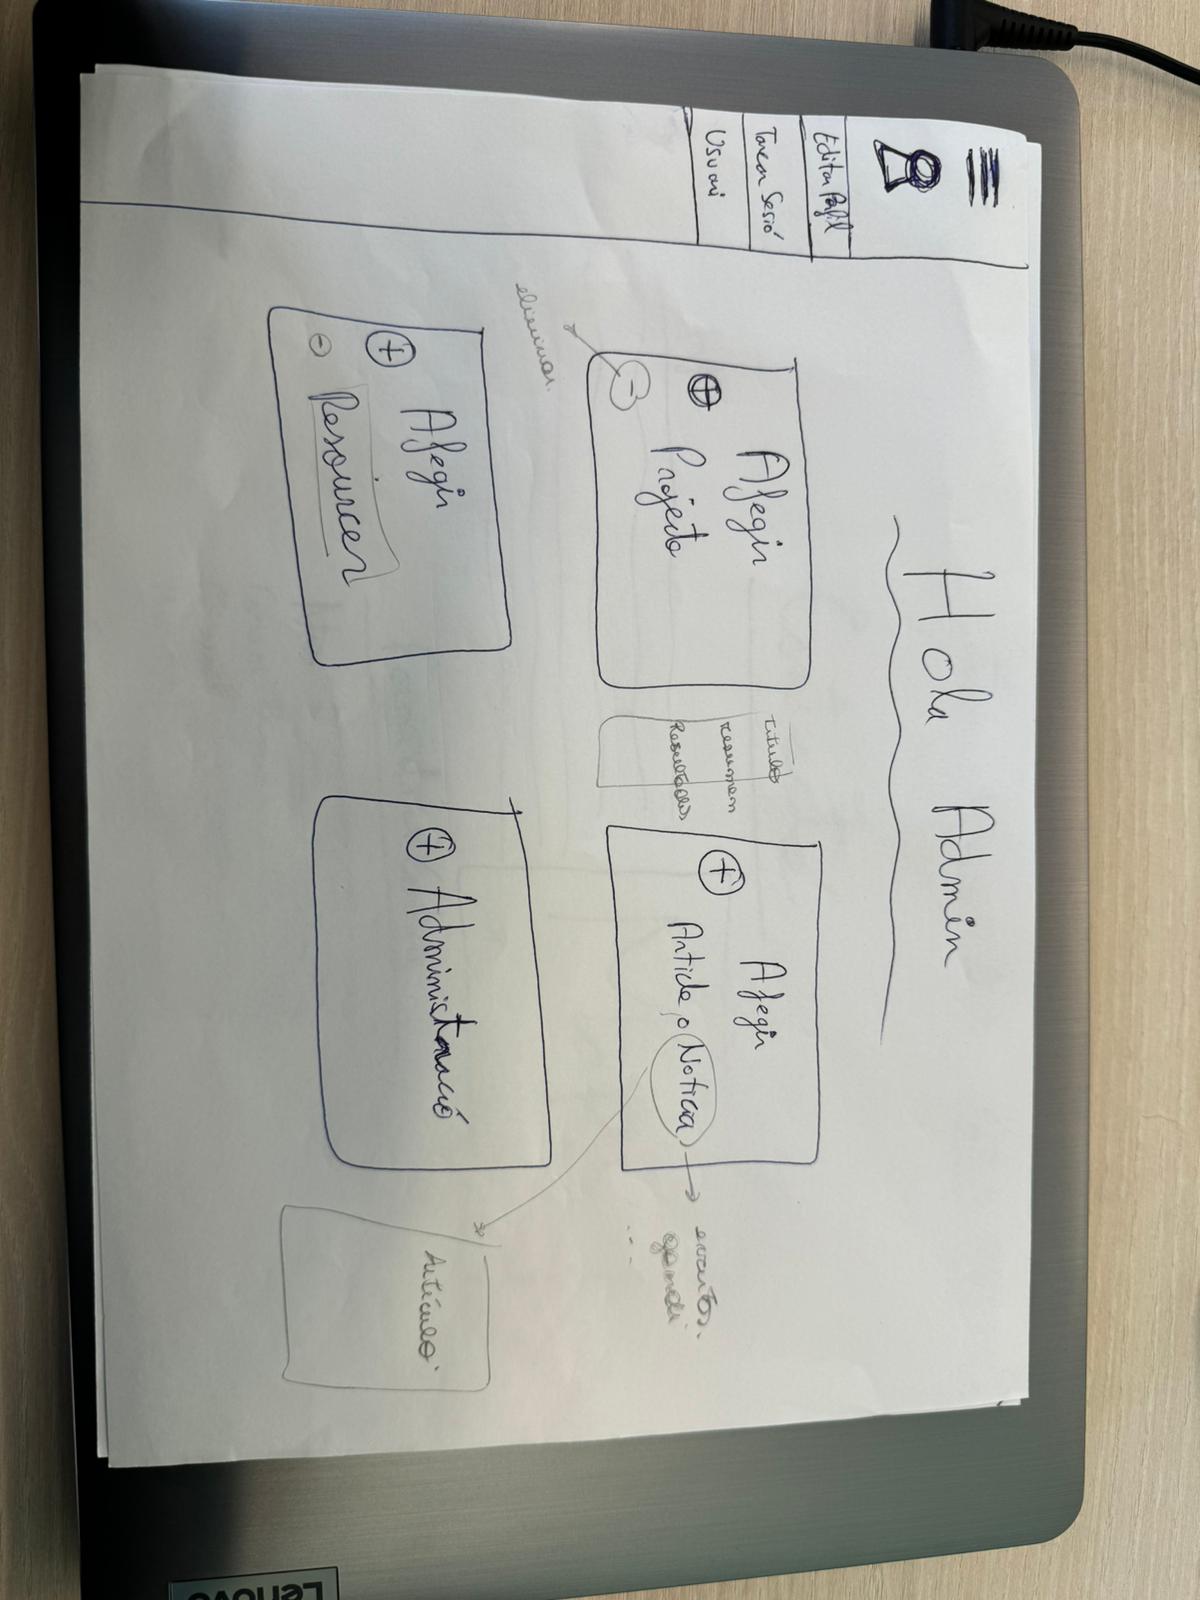 Hola Admin
Editar Perfil
Tancar Sesió
Usuari
Afegir
Projecte
eliminar.
Titulo
resumen
Resultados
Afegir
Article o Noticia
eventos.
...
Afegir
Resources
Administració
Artículo
Lenovo